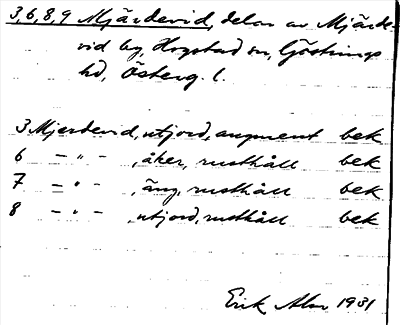 3,6,8,9 Mjärdevid, delar av Mjärde-
vid by, Hogstad sn, Göstrings
hd, Österg. l.
3 Mjerdevid, utjord, augment bek
6 — " — , åker, rusthåll bek
7 — " — , äng, rusthåll bek
8 — " — , utjord, rusthåll bek
Erik Alm 1931